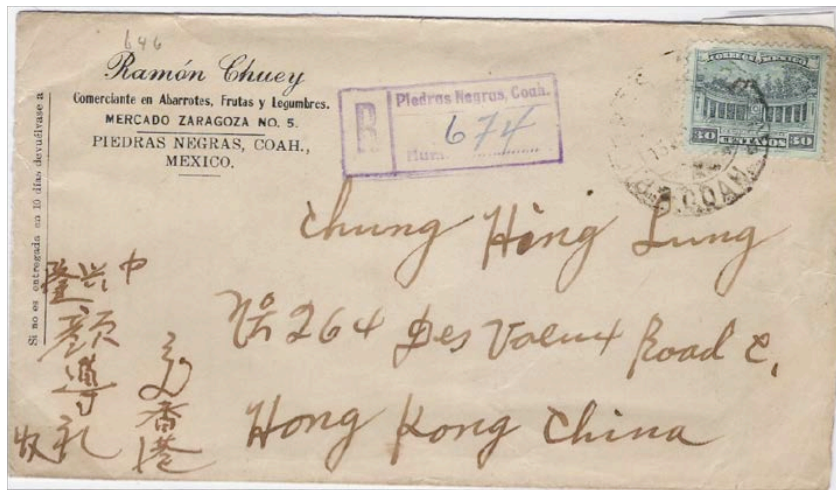 646
Ramón Chuey
Comerciante en Abarrotes, Frutas y Legumbres.
MERCADO ZARAGOZA NO. 5.
PIEDRAS NEGRAS, COAH.,
MEXICO.
Si no es entregada en 10 días devuélvase a
R
Piedras Negras, Coah.
674
Num.
CORREOS MEXICO
30 CENTAVOS 30
COAH
Chung Hing Lung
No 264 Des Voeux Road C.
Hong Kong China
香港
中興隆
顏導礼
收